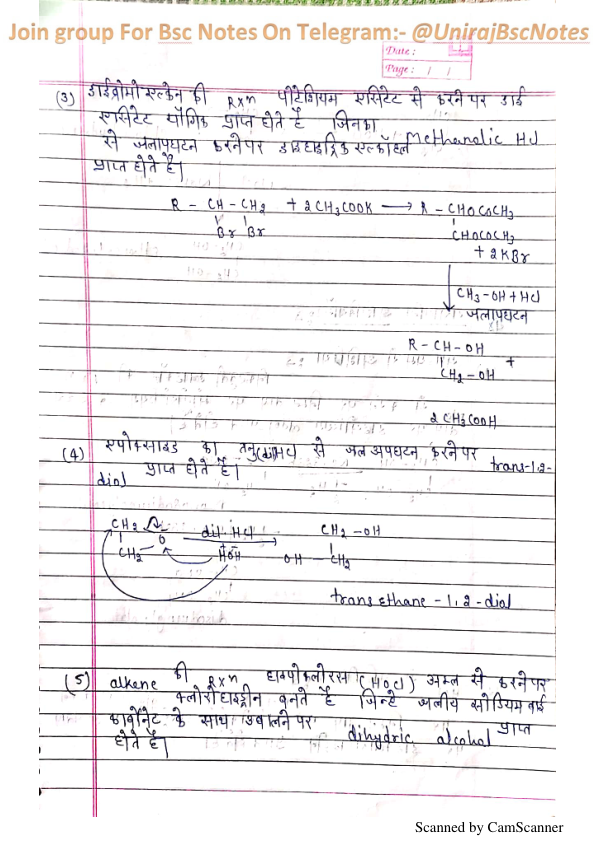 Join group For Bsc Notes On Telegram:- @UnirajBscNotes
Date :
Page : / /
(3) डाईब्रोमो एल्केन की Rxn पोटेशियम एसिटेट से करने पर डाई
एसिटेट यौगिक प्राप्त होते है जिनका Methanolic HCl
से जलापघटन करने पर डाइहाइड्रिक एल्कॉहल
प्राप्त होते है।
R - CH - CH2 + 2CH3COOK → R - CHOCOCH3
Br Br CHOCOCH3
+ 2KBr
CH3-OH + HCl
जलापघटन
R - CH - OH
+
CH2 - OH
2 CH3COOH
(4) एपोक्साइड का तनु(dil HCl) से जल अपघटन करने पर trans-1,2-
diol प्राप्त होते है।
CH2 O dil HCl CH2 - OH
CH2 HOH OH - CH2
trans ethane - 1,2 - dial
(5) alkene की Rxn हाइपोक्लोरस (CHOCl) अम्ल से करने पर
क्लोरोहाइड्रीन बनते है जिन्हे जलीय सोडियम बाई
कार्बोनेट के साथ उबालने पर प्राप्त
होते है। dihydric alcohal
Scanned by CamScanner